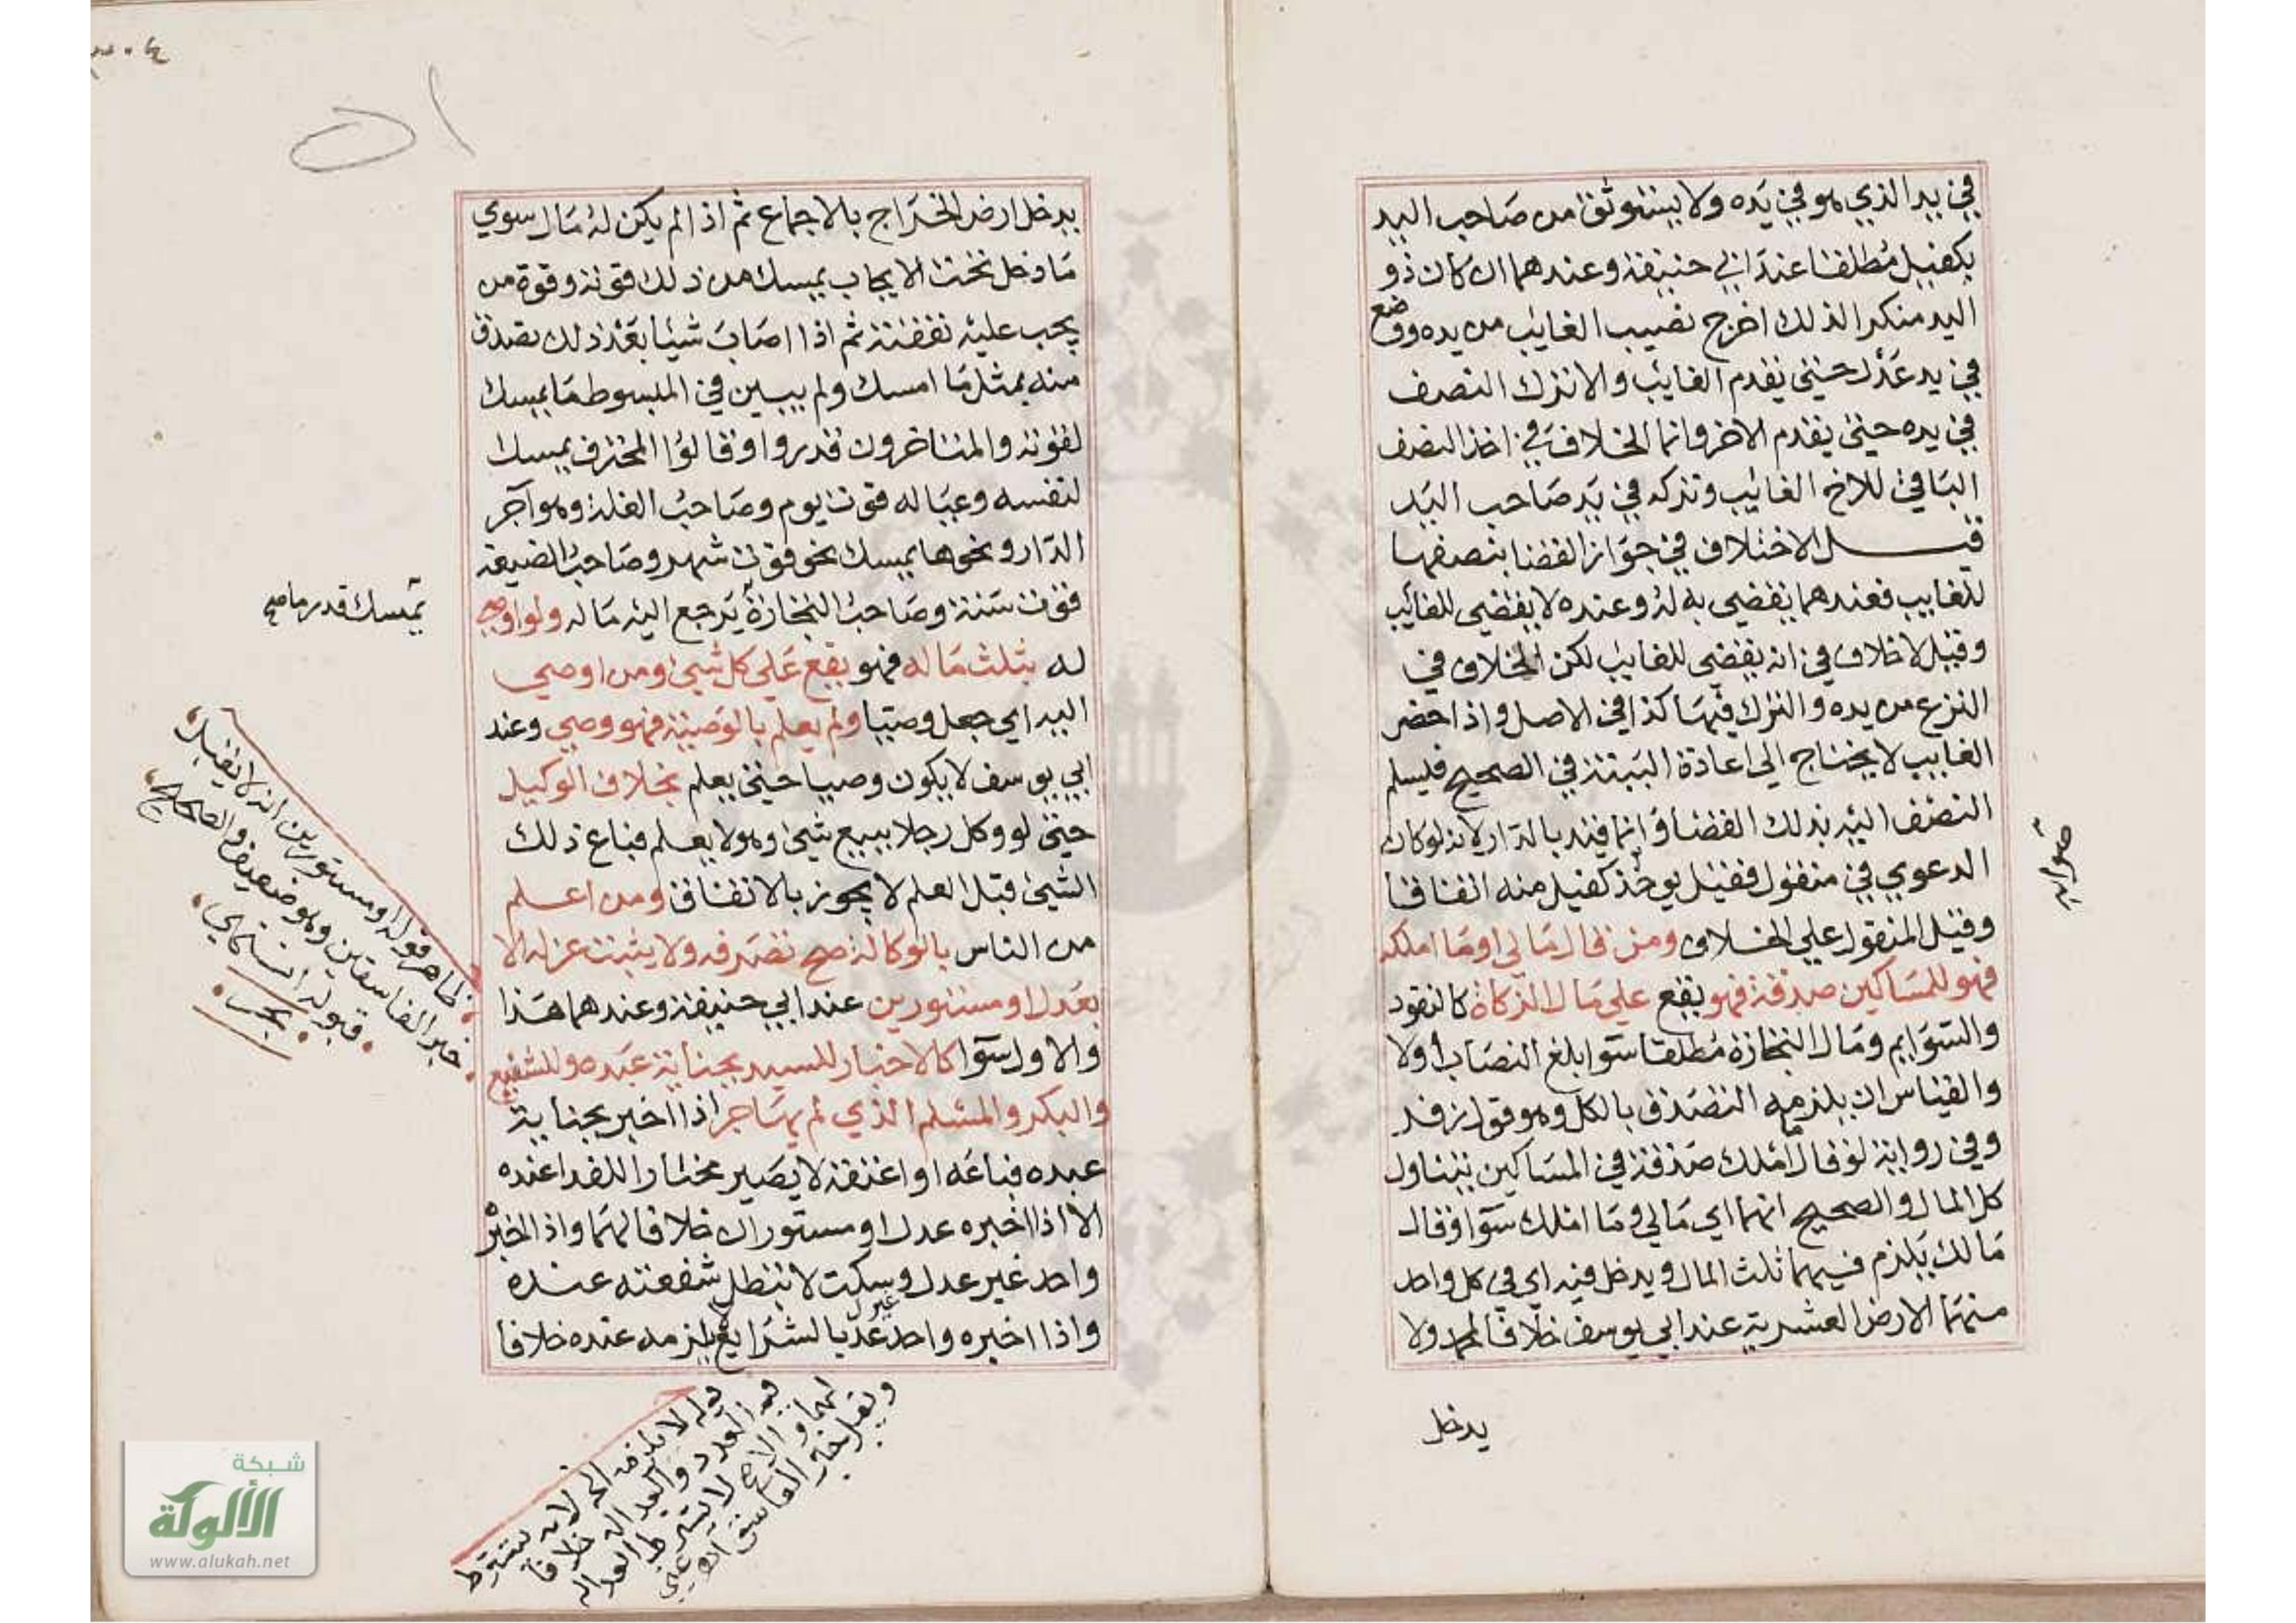 في يد الذي هو في يده ولا يستوثق من صاحب اليد
بكفيل مطلقا عند ابي حنيفة وعندهما ان كان ذو
اليد منكرا لذلك اخرج نصيب الغايب من يده ووضع
في يد عدل حتي يقدم الغايب والا نترك النصف
في يده حتي يقدم الاخر وانما الخلاف في اخذ النصف
الباقي للاخ الغايب وتركه في يد صاحب اليد
قيل الاختلاف في جواز القضا بنصفها
للغايب فعندهما يقضي به له وعنده لا يقضي للغايب
وقيل لا خلاف في انه يقضي للغايب لكن الخلاف في
النزع من يده والترك فيها كذا في الاصل واذا حضر
الغايب لا يحتاج الي اعادة البينة في الصحيح فيسلم
النصف اليه بذلك القضا وانما قيد بالدار لانه لو كان
الدعوي في منقول فقيل يوخذ كفيل منه اتفاقا
وقيل المنقول علي الخلاف ومن قال مالي او ما املكه
فهو للمساكين صدقة فهو يقع علي مال الزكاة كالنقود
والسوايم ومال التجارة مطلقا سوا بلغ النصاب أولا
والقياس ان يلزمه التصدق بالكل وهو قول زفر
وفي رواية لو قال ما املك صدقة في المساكين يتناول
كل المال والصحيح انهما اي مالي وما املك سوا وقال
مالك يلزم فيهما ثلث المال ويدخل فيه اي في كل واحد
منهما الارض العشرية عند ابي يوسف خلافا لمحمد ولا
يدخل
يدخل ارض الخراج بالاجماع ثم اذا لم يكن له مال سوي
ما دخل تحت الايجاب يمسك من ذلك قوته وقوة من
يجب عليه نفقته ثم اذا اصاب شيئا بعد ذلك تصدق
منه بمثل ما امسك ولم يبين في المبسوط ما يمسك
لقوته والمتاخرون قدروا وقالوا المحترف يمسك
لنفسه وعياله قوت يوم وصاحب الغلة وهو آجر
الدار ونحوها يمسك نحو قوت شهر وصاحب الضيعة
قوت سنة وصاحب التجارة يرجع اليه ماله ولو اوصي
له بثلث ماله فهو يقع علي كل شيئ ومن اوصي
اليه اي جعل وصيا ولم يعلم بالوصية فهو وصي وعند
ابي يوسف لا يكون وصيا حتي يعلم بخلاف الوكيل
حتي لو وكل رجلا ببيع شيئ وهو لا يعلم فباع ذلك
الشيئ قبل العلم لا يجوز بالاتفاق ومن اعلم
من الناس بالوكالة صح تصرفه ولا يثبت عزله الا
بعدل او مستورين عند ابي حنيفة وعندهما هذا
والاول سوا كالاخبار للسيد بجناية عبده وللشفيع
والبكر والمسلم الذي لم يهاجر اذا اخبر بجناية
عبده فباعه او اعتقه لا يصير مختارا للفدا عنده
الا اذا اخبره عدل او مستوران خلافا لهما واذا اخبر
واحد غير عدل وسكت لا تبطل شفعته عنده
واذا اخبره واحد غير عدل بالشرايع لا يلزمه عنده خلافا
يمسك قدر ما
ظاهر قوله او مستورين انه لا يقبل
خبر الفاسقين وهو ضعيف والصحيح
قبوله
بحر
قوله لا يلزمه الخ لانه يشترط
فيه العدد والعداله خلافا
لهما والاصح لا يشترط العداله
ويقبل خبر الفاسق
شبكة
الألوكة
www.alukah.net